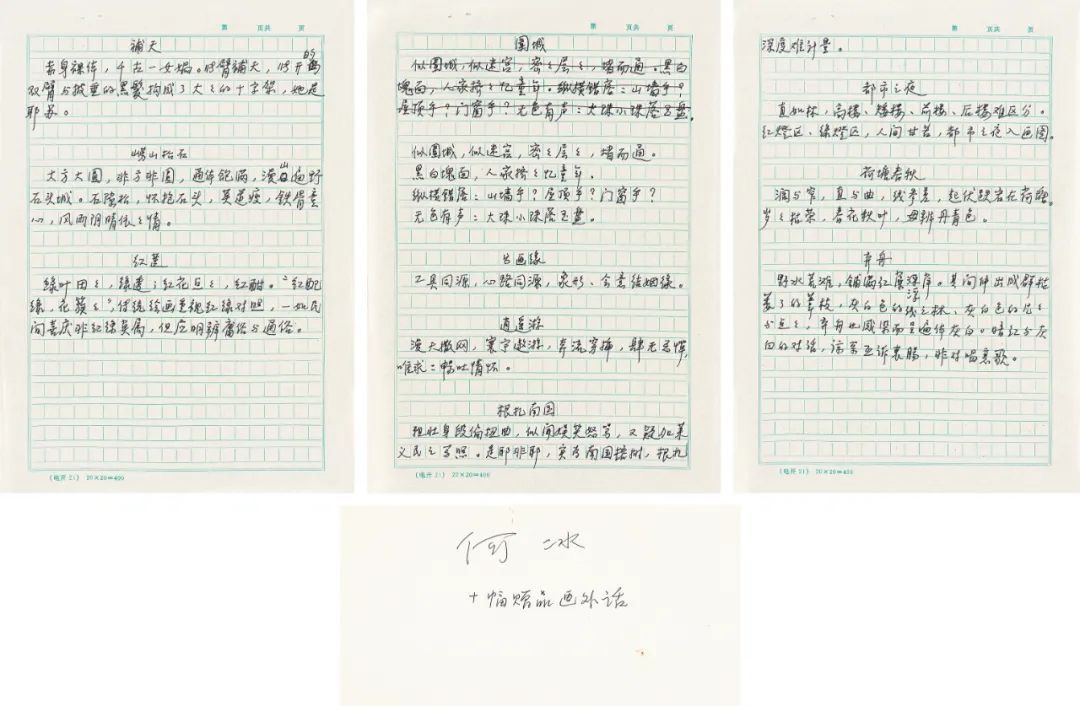 第　页共　页
補天
赤身裸体，千古一女娲。娲臂補天，娲开的
双臂与披垂的黑髮构成了大大的十字架，她是
耶苏。
崂山松石
大方大圆，非方非圆，通体饱满，漫山遍野
石头城。石隆松，怀抱石头，莫道瘦，铁骨柔
心，风雨阴晴依依情。
红莲
绿叶田田，绿遮；红花点点，红酣。“红配
绿，花簇簇”，传统绘画重视红绿对照，一如民
间喜庆非红绿莫属，但应明辨庸俗与通俗。
(电开21) 20×20=400
第　页共　页
围城
似围城，似迷宫，密密层层，堵而通。黑白
块面，人家挤挤忆童年。纵横错落：山墙乎？
屋顶乎？门窗乎？无色有声：大珠小珠落玉盘。
似围城，似迷宫，密密层层，堵而通。
黑白块面，人家挤挤忆童年。
纵横错落：山墙乎？屋顶乎？门窗乎？
无色有声：大珠小珠落玉盘。
书画缘
工具同源，心路同源，象形、会意结姻缘。
逍遥游
漫天撒网，寰宇遨游，奔流穿插，肆无忌惮，
唯求：畅吐情怀。
根扎南国
粗壮身段偏扭曲，似闻嬉笑怒骂，又疑加莱
义民之写照。是耶非耶，实乃南国榕树，根扎
(电开21) 20×20=400
第　页共　页
深度难计量。
都市之夜
直如林，高楼、矮楼、前楼、后楼难区分。
红燈区、绿燈区，人间甘苦，都市之夜入画图。
荷塘春秋
阔与窄，直与曲，线参差，起伏跌宕在荷塘。
岁岁枯荣，春花秋叶，毋辨丹青色。
弃舟
野水荒滩，铺满红藻浮萍。其间伸出成群枯
萎了的草枝，灰白色的线之林，灰白色的片片
与点点，弃舟也感染而呈遍体灰白。暗红与灰
白的对话，该是互诉衷肠，非对唱哀歌。
(电开21) 20×20=400
何冰
十幅赠品画外话